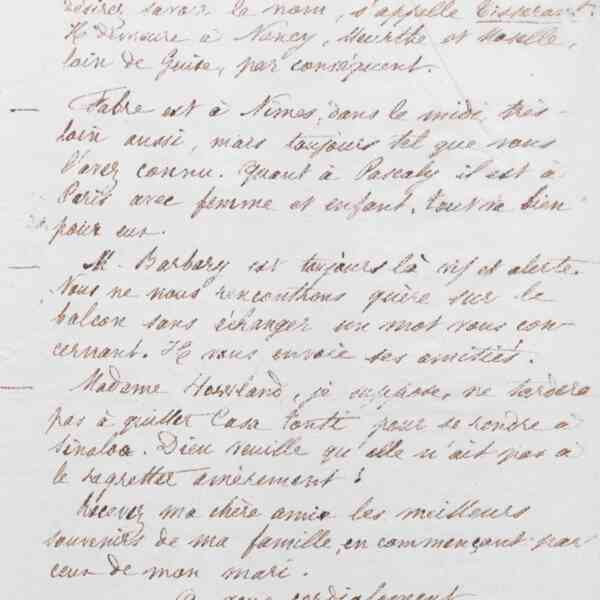 désirez savoir le nom, s'appelle Tisserant.
Il demeure à Nancy, Meurthe et Moselle,
loin de Guise, par conséquent.
Fabre est à Nîmes, dans le midi, très
loin aussi, mais toujours tel que vous
l'avez connu. Quant à Pascaly il est à
Paris avec femme et enfant, tout va bien
pour eux.
M. Barbary est toujours là vif et alerte.
Nous ne nous rencontrons guère sur le
balcon sans échanger un mot vous con-
cernant. Il vous envoie ses amitiés.
Madame Howland, je suppose, ne tardera
pas à quitter Casa Tonti pour se rendre à
Sinaloa. Dieu veuille qu'elle n'ait pas à
le regretter amèrement !
Recevez ma chère amie les meilleurs
souvenirs de ma famille, en commençant par
ceux de mon mari.
À vous cordialement